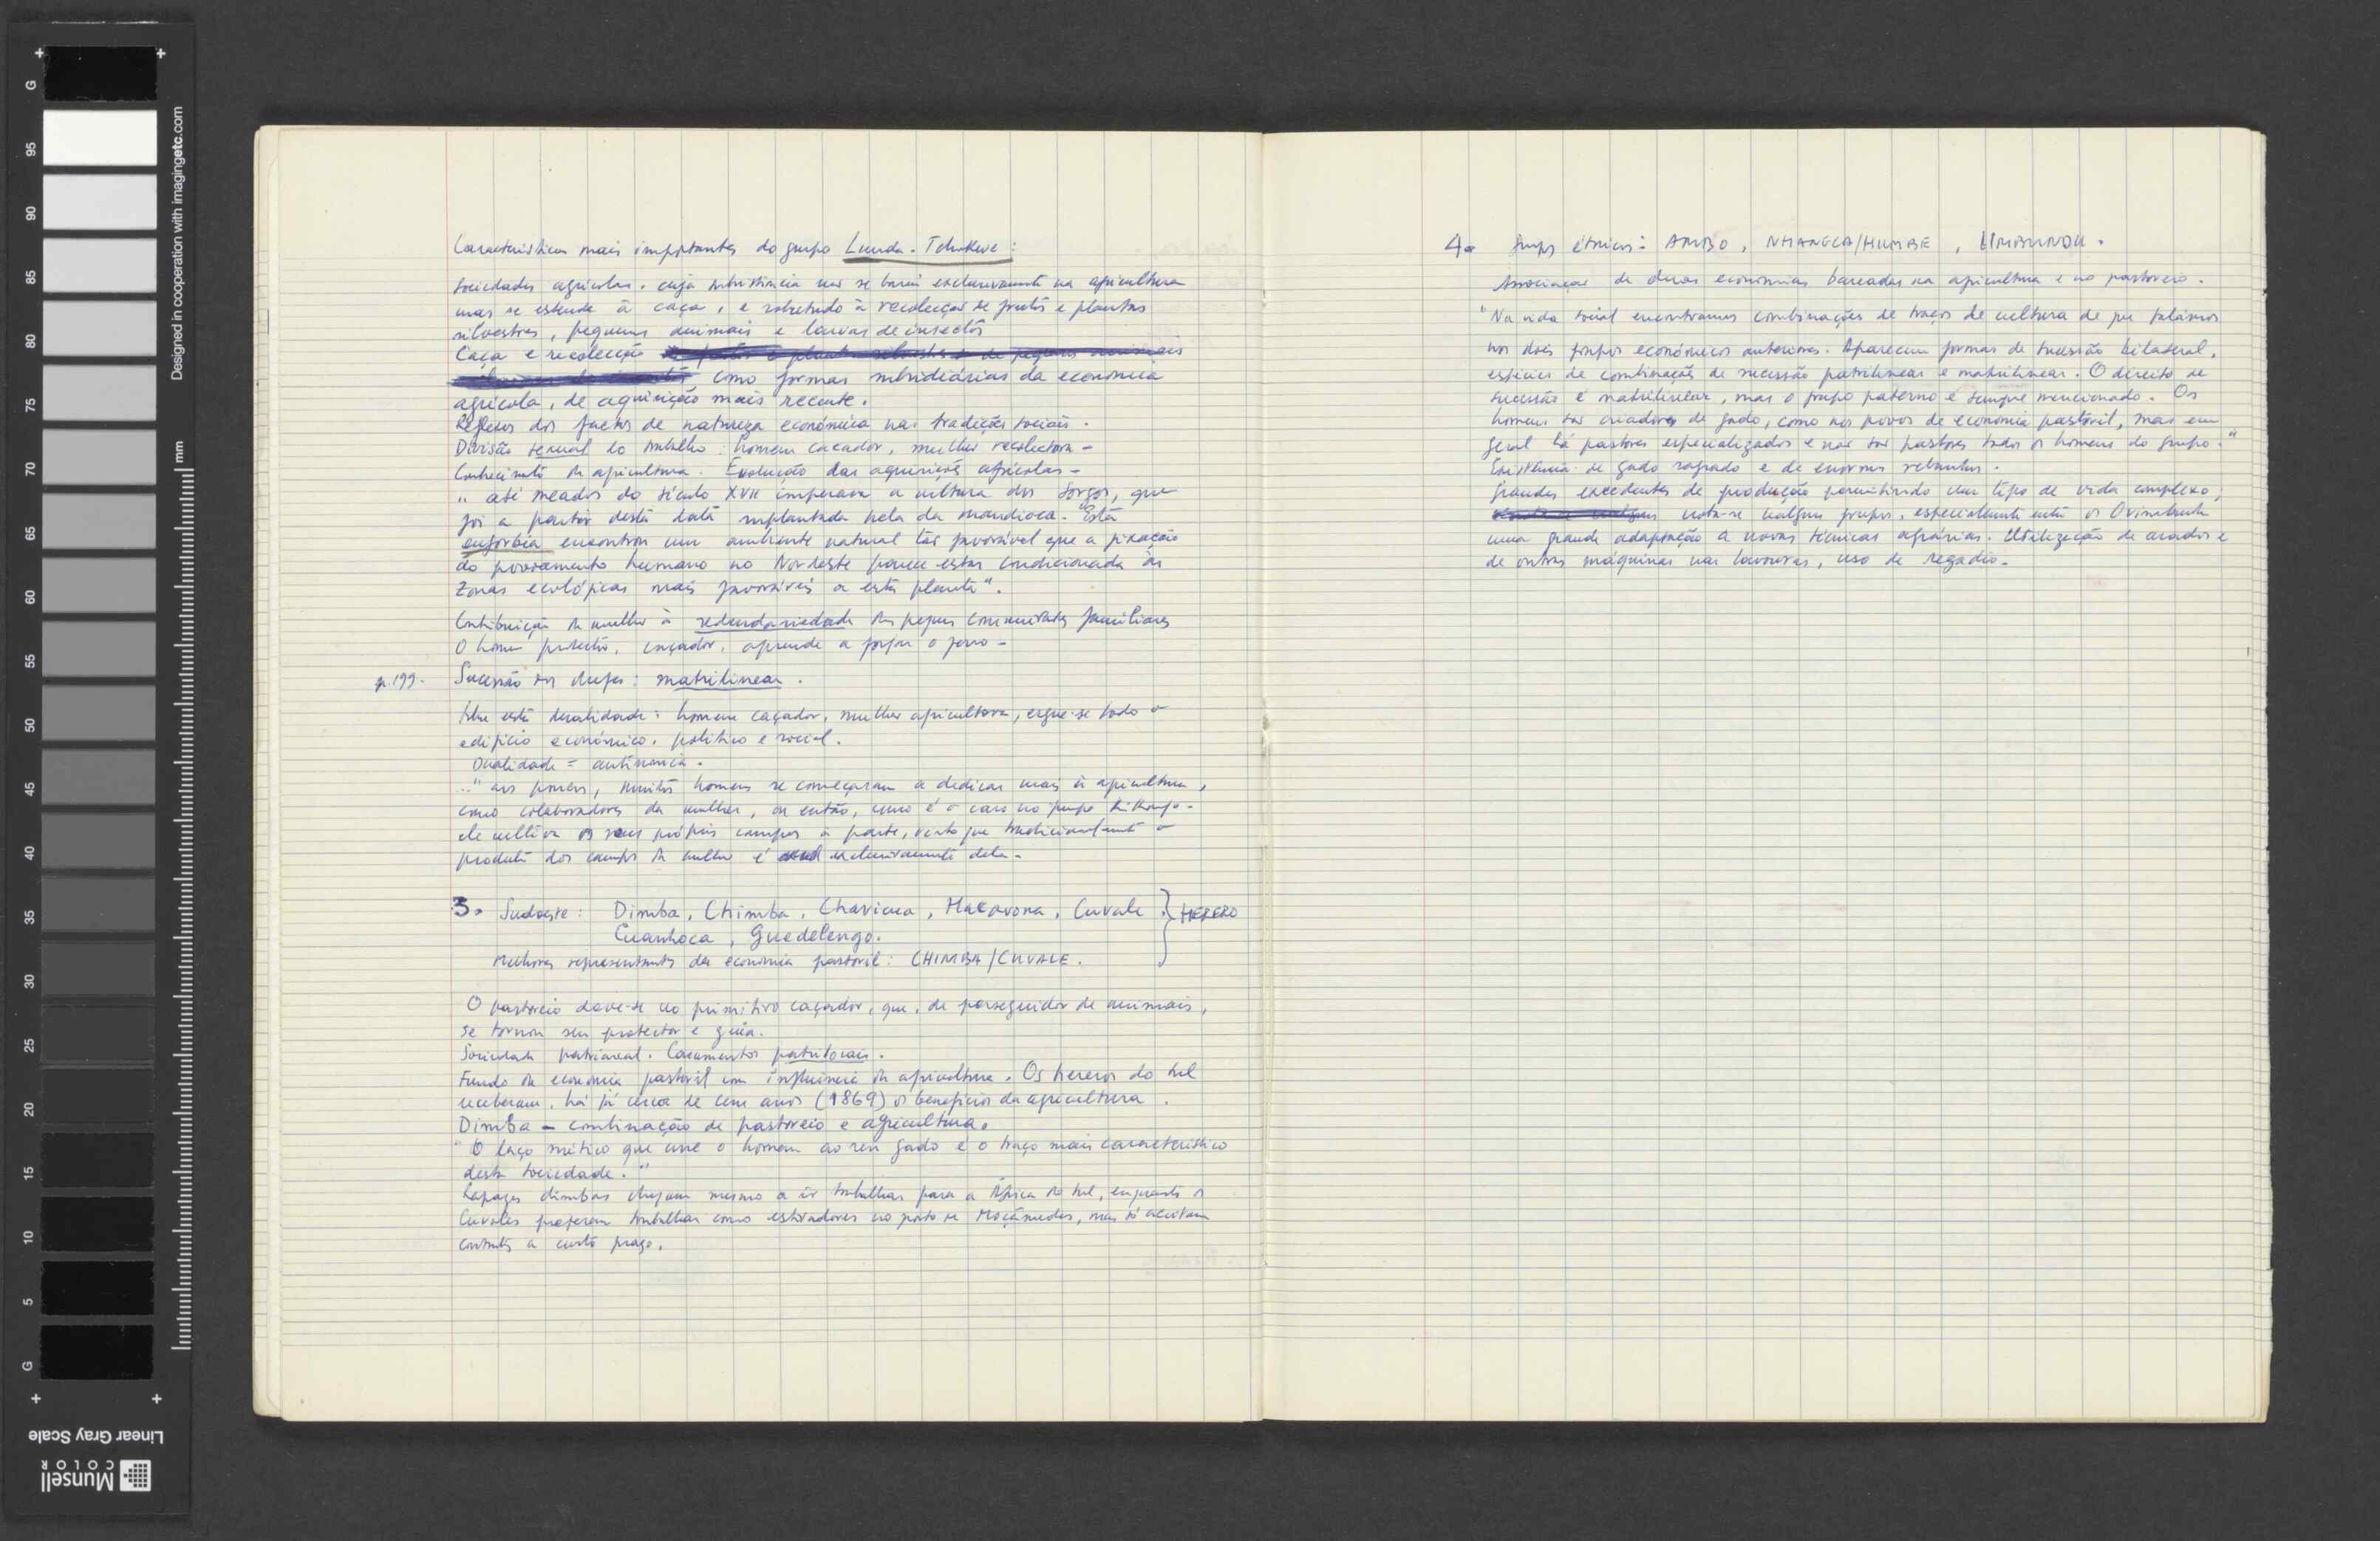 Características mais importantes do grupo Lunda-Tchokwe:
sociedades agrícolas, cuja subsistência não se baseia exclusivamente na agricultura
mas se estende à caça, e sobretudo à recolecção de frutos e plantas
silvestres, pequenos animais e larvas de insectos
Caça e recolecção de frutos e plantas silvestres e de pequenos animais
como formas subsidiárias da economia
agrícola, de aquisição mais recente.
Reflexos dos factos de natureza económica nas tradições sociais.
Divisão sexual do trabalho: homem caçador, mulher recolectora-
Conhecimento da agricultura. Evolução das aquisições agrícolas-
"até meados do século XVII imperava a cultura dos sorgos, que
foi a partir desta data suplantada pela da mandioca. Esta
euforbia encontrou um ambiente natural tão favorável que a fixação
do povoamento humano no Nordeste parece estar condicionada às
zonas ecológicas mais favoráveis a esta planta".
Contribuição da mulher à sedendariedade das pequenas comunidades familiares
O homem protector, caçador, aprende a forjar o ferro-
p.199.
Sucessão dos chefes: matrilinear.
Sobre esta dualidade: homem caçador, mulher agricultora, ergue-se todo o
edifício económico, político e social.
Dualidade = autonomia.
..."aos poucos, muitos homens se começaram a dedicar mais à agricultura,
como colaboradores da mulher, ou então, como é o caso no grupo Kikongo-
ele cultiva os seus próprios campos à parte, visto que tradicionalmente o
produto dos campos da mulher é exclusivamente dela-
3. Sudoeste: Dimba, Chimba, Chavicua, Macavona, Cuvale } HERERO
Cuanhoca, Guedelengo.
Melhores representantes da economia pastoril: CHIMBA/CUVALE.
O pastoreio deve-se ao primitivo caçador, que, de perseguidor de animais,
se tornou seu protector e guia.
Sociedade patriarcal. Casamentos patrilocais.
Fundo de economia pastoril com influência da agricultura. Os hereros do sul
receberam, há já cerca de cem anos (1869) os benefícios da agricultura.
Dimba - combinação de pastoreio e agricultura.
"O laço mítico que une o homem ao seu gado é o traço mais característico
desta sociedade."
Rapazes dimbas chegam mesmo a ir trabalhar para a África do Sul, enquanto os
Cuvales preferem trabalhar como estivadores no porto de Moçâmedes, mas só aceitam
contratos a curto prazo.
4. Grupos étnicos: AMBO, NHANECA/HUMBE, UMBUNDU.
Associação de duas economias baseadas na agricultura e no pastoreio.
"Na vida social encontramos combinações de traços de cultura de que falámos
nos dois grupos económicos anteriores. Aparecem formas de sucessão bilateral,
espécies de combinações de sucessão patrilinear e matrilinear. O direito de
sucessão é matrilinear, mas o grupo paterno é sempre mencionado. Os
homens são criadores de gado, como nos povos de economia pastoril, mas em
geral há pastores especializados e não são pastores todos os homens do grupo."
Existência de gado sagrado e de enormes rebanhos.
Grandes excedentes de produção permitindo um tipo de vida complexo;
nota-se nalguns grupos, especialmente entre os Ovimbundu
uma grande adaptação a novas técnicas agrárias. Utilização de arados e
de outras máquinas nas lavouras, uso de regadio.
G
95
90
85
80
75
70
65
60
55
50
45
40
35
30
25
20
15
10
5
G
mm
Designed in cooperation with imagingetc.com
Linear Gray Scale
Munsell
COLOR